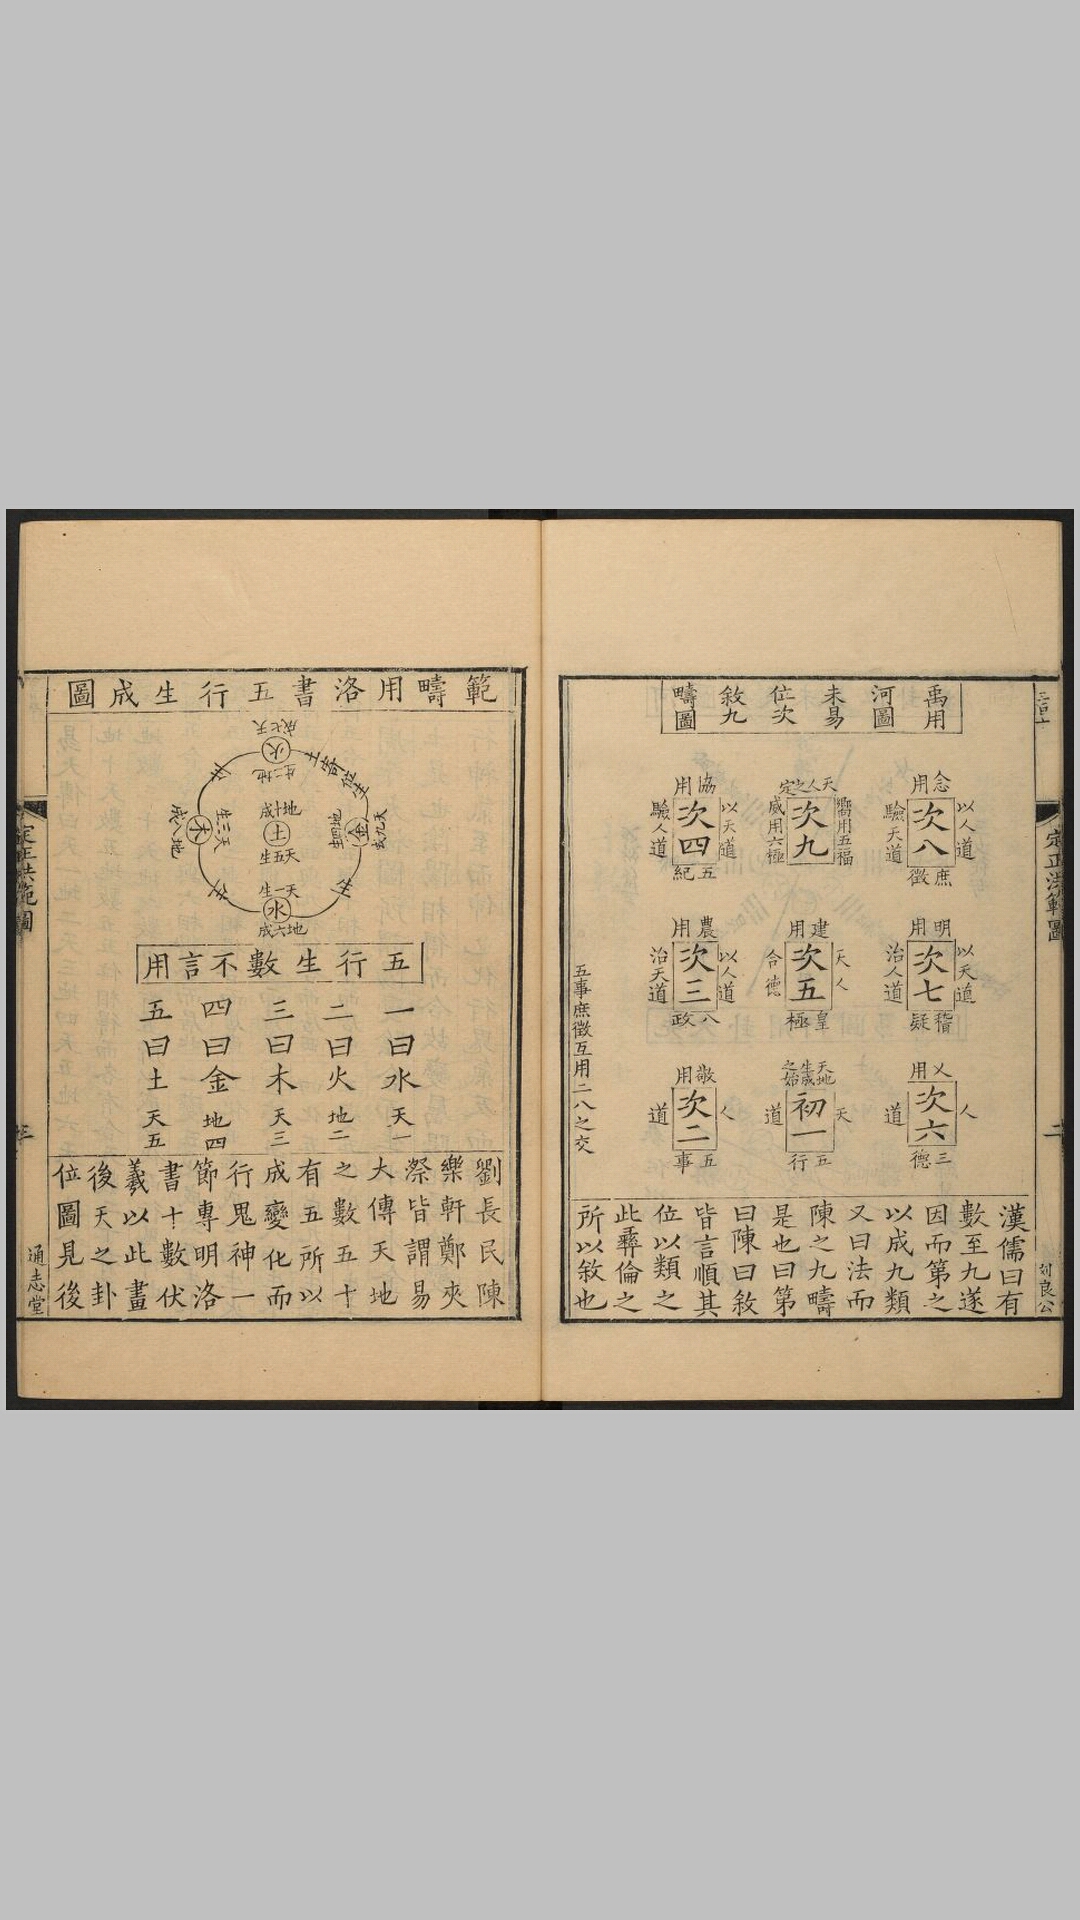 禹用
河圖
未易
位次
敘九
疇圖
念用
以人道
次八
驗天道
庶徵
天人之定
嚮用五福
次九
威用六極
協用
以天道
次四
驗人道
五紀
明用
以天道
次七
治人道
稽疑
建用
天人
次五
合德
皇極
農用
以人道
次三
治天道
八政
乂用
人
次六
道
三德
天地生成之始
天
初一
道
五行
敬用
人
次二
道
五事
五事庶徵互用二八之交
漢儒曰有
數至九遂
因而第之
以成九類
又曰法而
陳之九疇
是也曰第
曰陳曰敘
皆言順其
位以類之
此彝倫之
所以敘也
定正洪範圖
二
刘良公
範疇用洛書五行生成圖
天七成
火
地二生
土寄位生
地十成
土
天五生
天九成
金
地四生
天三生
木
地八成
天一生
水
地六成
生
生
生
五行生數不言用
一曰水 天一
二曰火 地二
三曰木 天三
四曰金 地四
五曰土 天五
劉長民陳
樂軒鄭夾
漈皆謂易
大傳天地
之數五十
有五所以
成變化而
行鬼神一
節專明洛
書十數伏
羲以此畫
後天之卦
位圖見後
定正洪範圖
通志堂